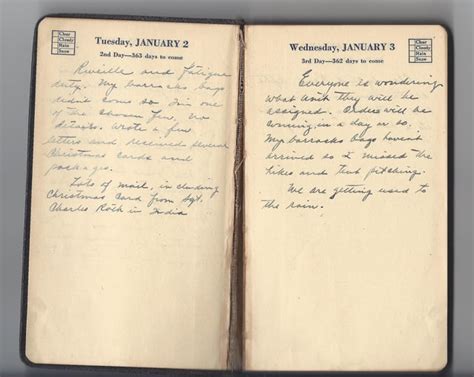 Clear
Cloudy
Rain
Snow
Tuesday, JANUARY 2
2nd Day—363 days to come
Reveille and fatigue
duty. My barracks bags
didnt come so I'm one
of the chosen few, no
details. Wrote a few
letters and received several
Christmas cards and
packages.
Lots of mail, including
Christmas card from Sgt.
Charles Roth in India
Clear
Cloudy
Rain
Snow
Wednesday, JANUARY 3
3rd Day—362 days to come
Everyone is wondering
what unit they will be
assigned. Orders will be
coming in a day or so.
My barracks bags haven't
arrived so I missed the
hikes and tent pitching.
We are getting used to
the rain.